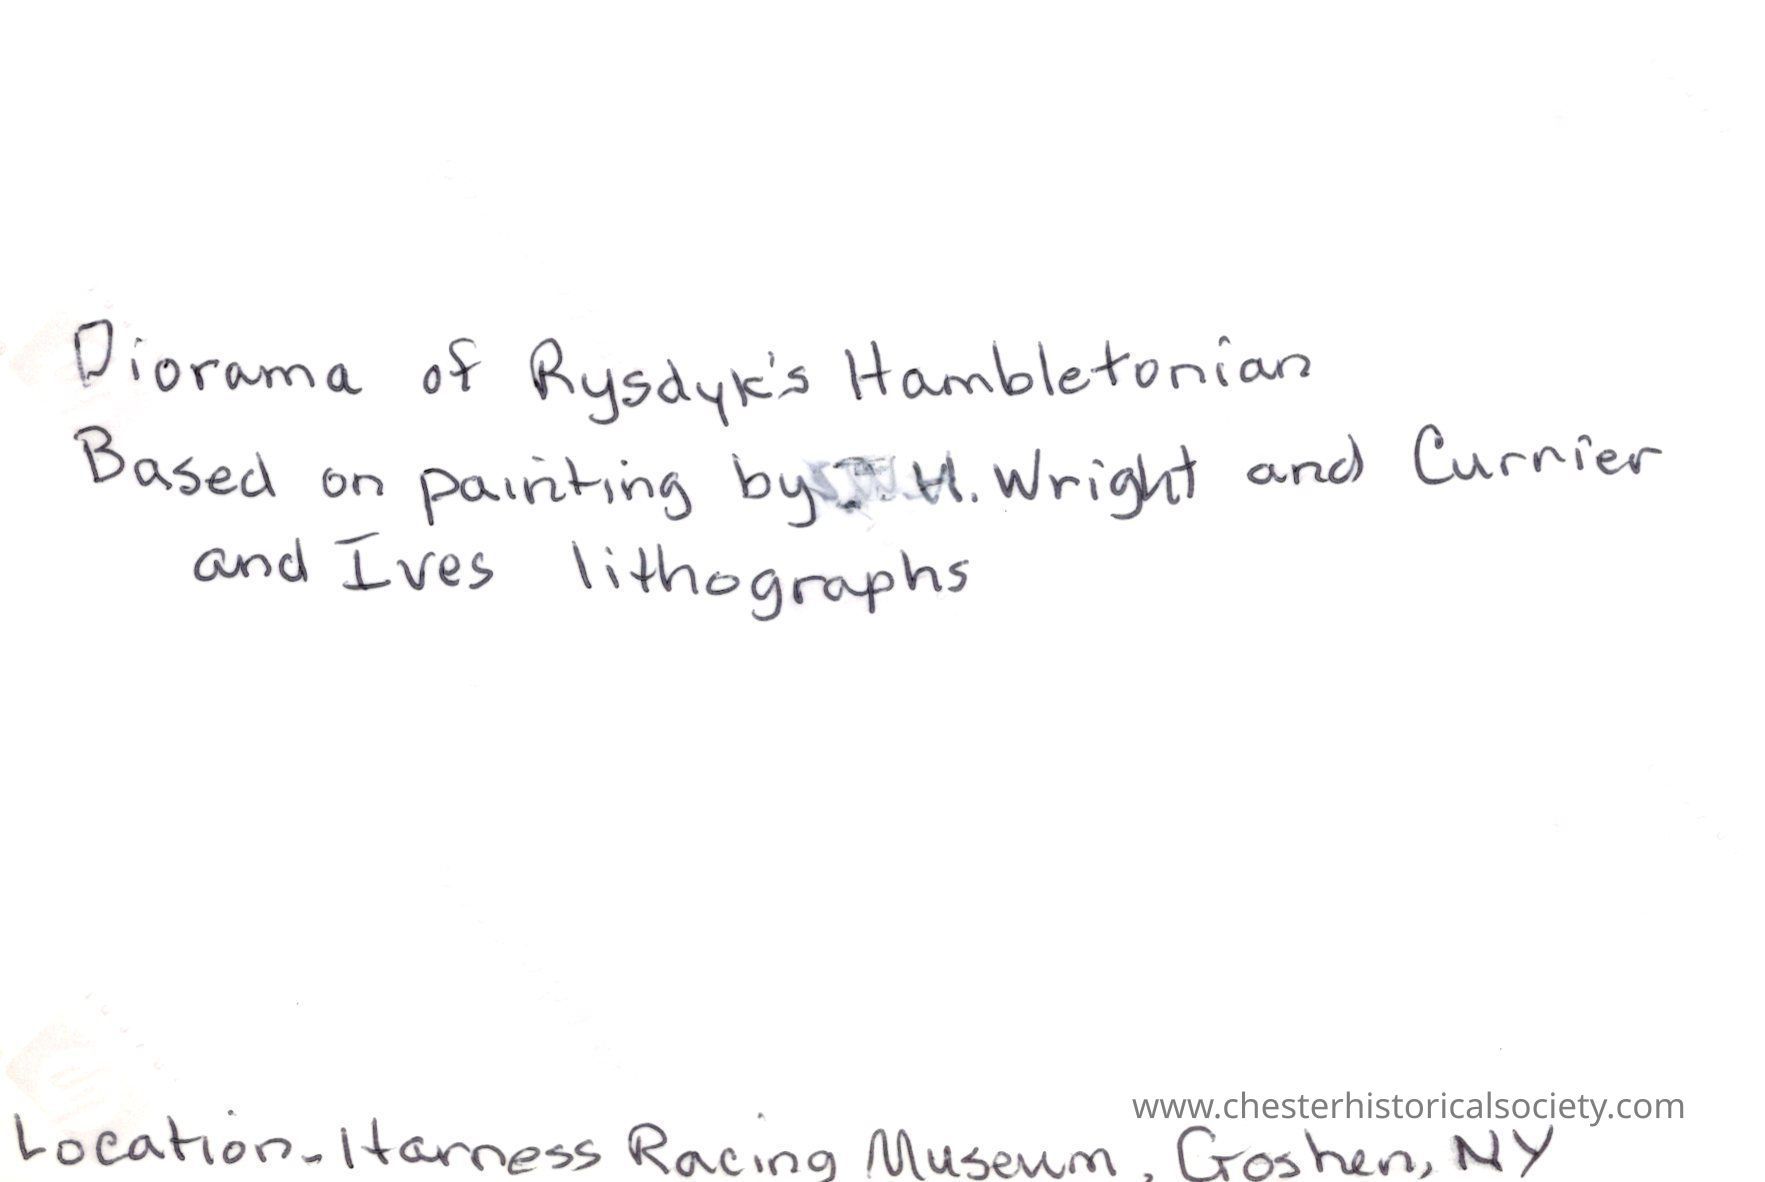 Diorama of Rysdyk's Hambletonian
Based on painting by J. H. Wright and Currier
and Ives lithographs
www.chesterhistoricalsociety.com
Location - Harness Racing Museum, Goshen, NY